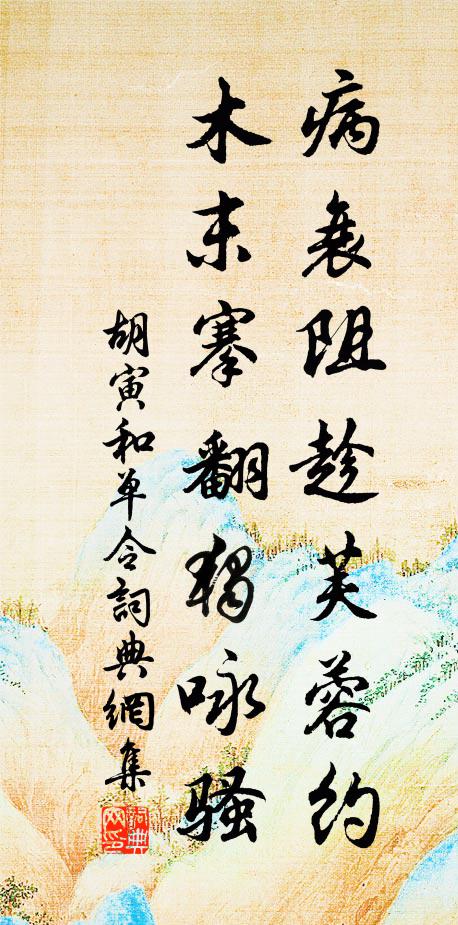 病衰阻趁芙蓉约
木末搴翻独咏骚
胡寅和单令詞典網集
詞典
网印